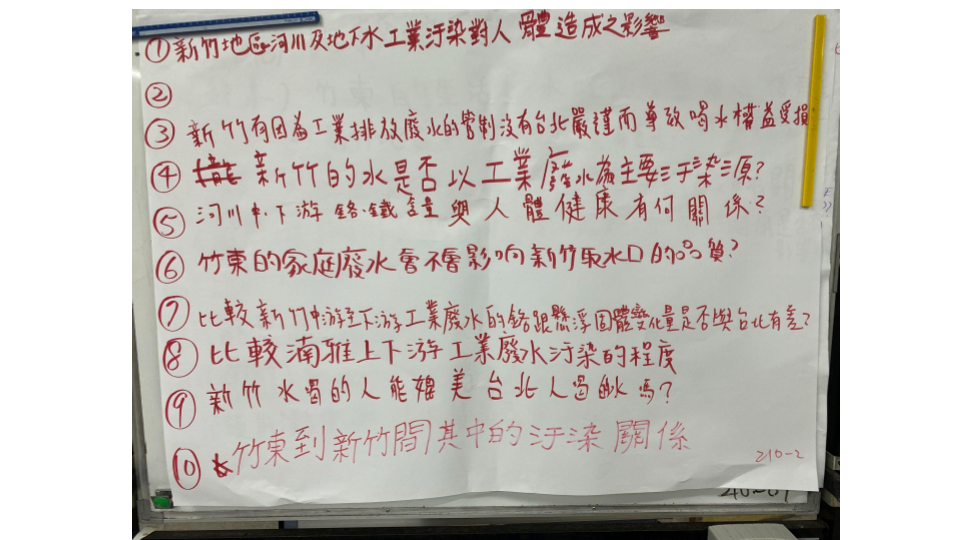 ① 新竹地區河川及地下水工業汙染對人體造成之影響
②
③ 新竹有因為工業排放廢水的管制沒有台北嚴謹而導致喝水權益受損
④ 新竹的水是否以工業廢水為主要汙染源?
⑤ 河川中、下游鉻、鐵含量與人體健康有何關係?
⑥ 竹東的家庭廢水會不會影响新竹取水口的品質?
⑦ 比較新竹中游至下游工業廢水的鉻跟懸浮固體變化量是否與台北有差?
⑧ 比較湳雅上下游工業廢水汙染的程度
⑨ 新竹水喝的人能媲美台北人喝的水嗎?
⑩ 竹東到新竹間其中的汙染關係
210-2